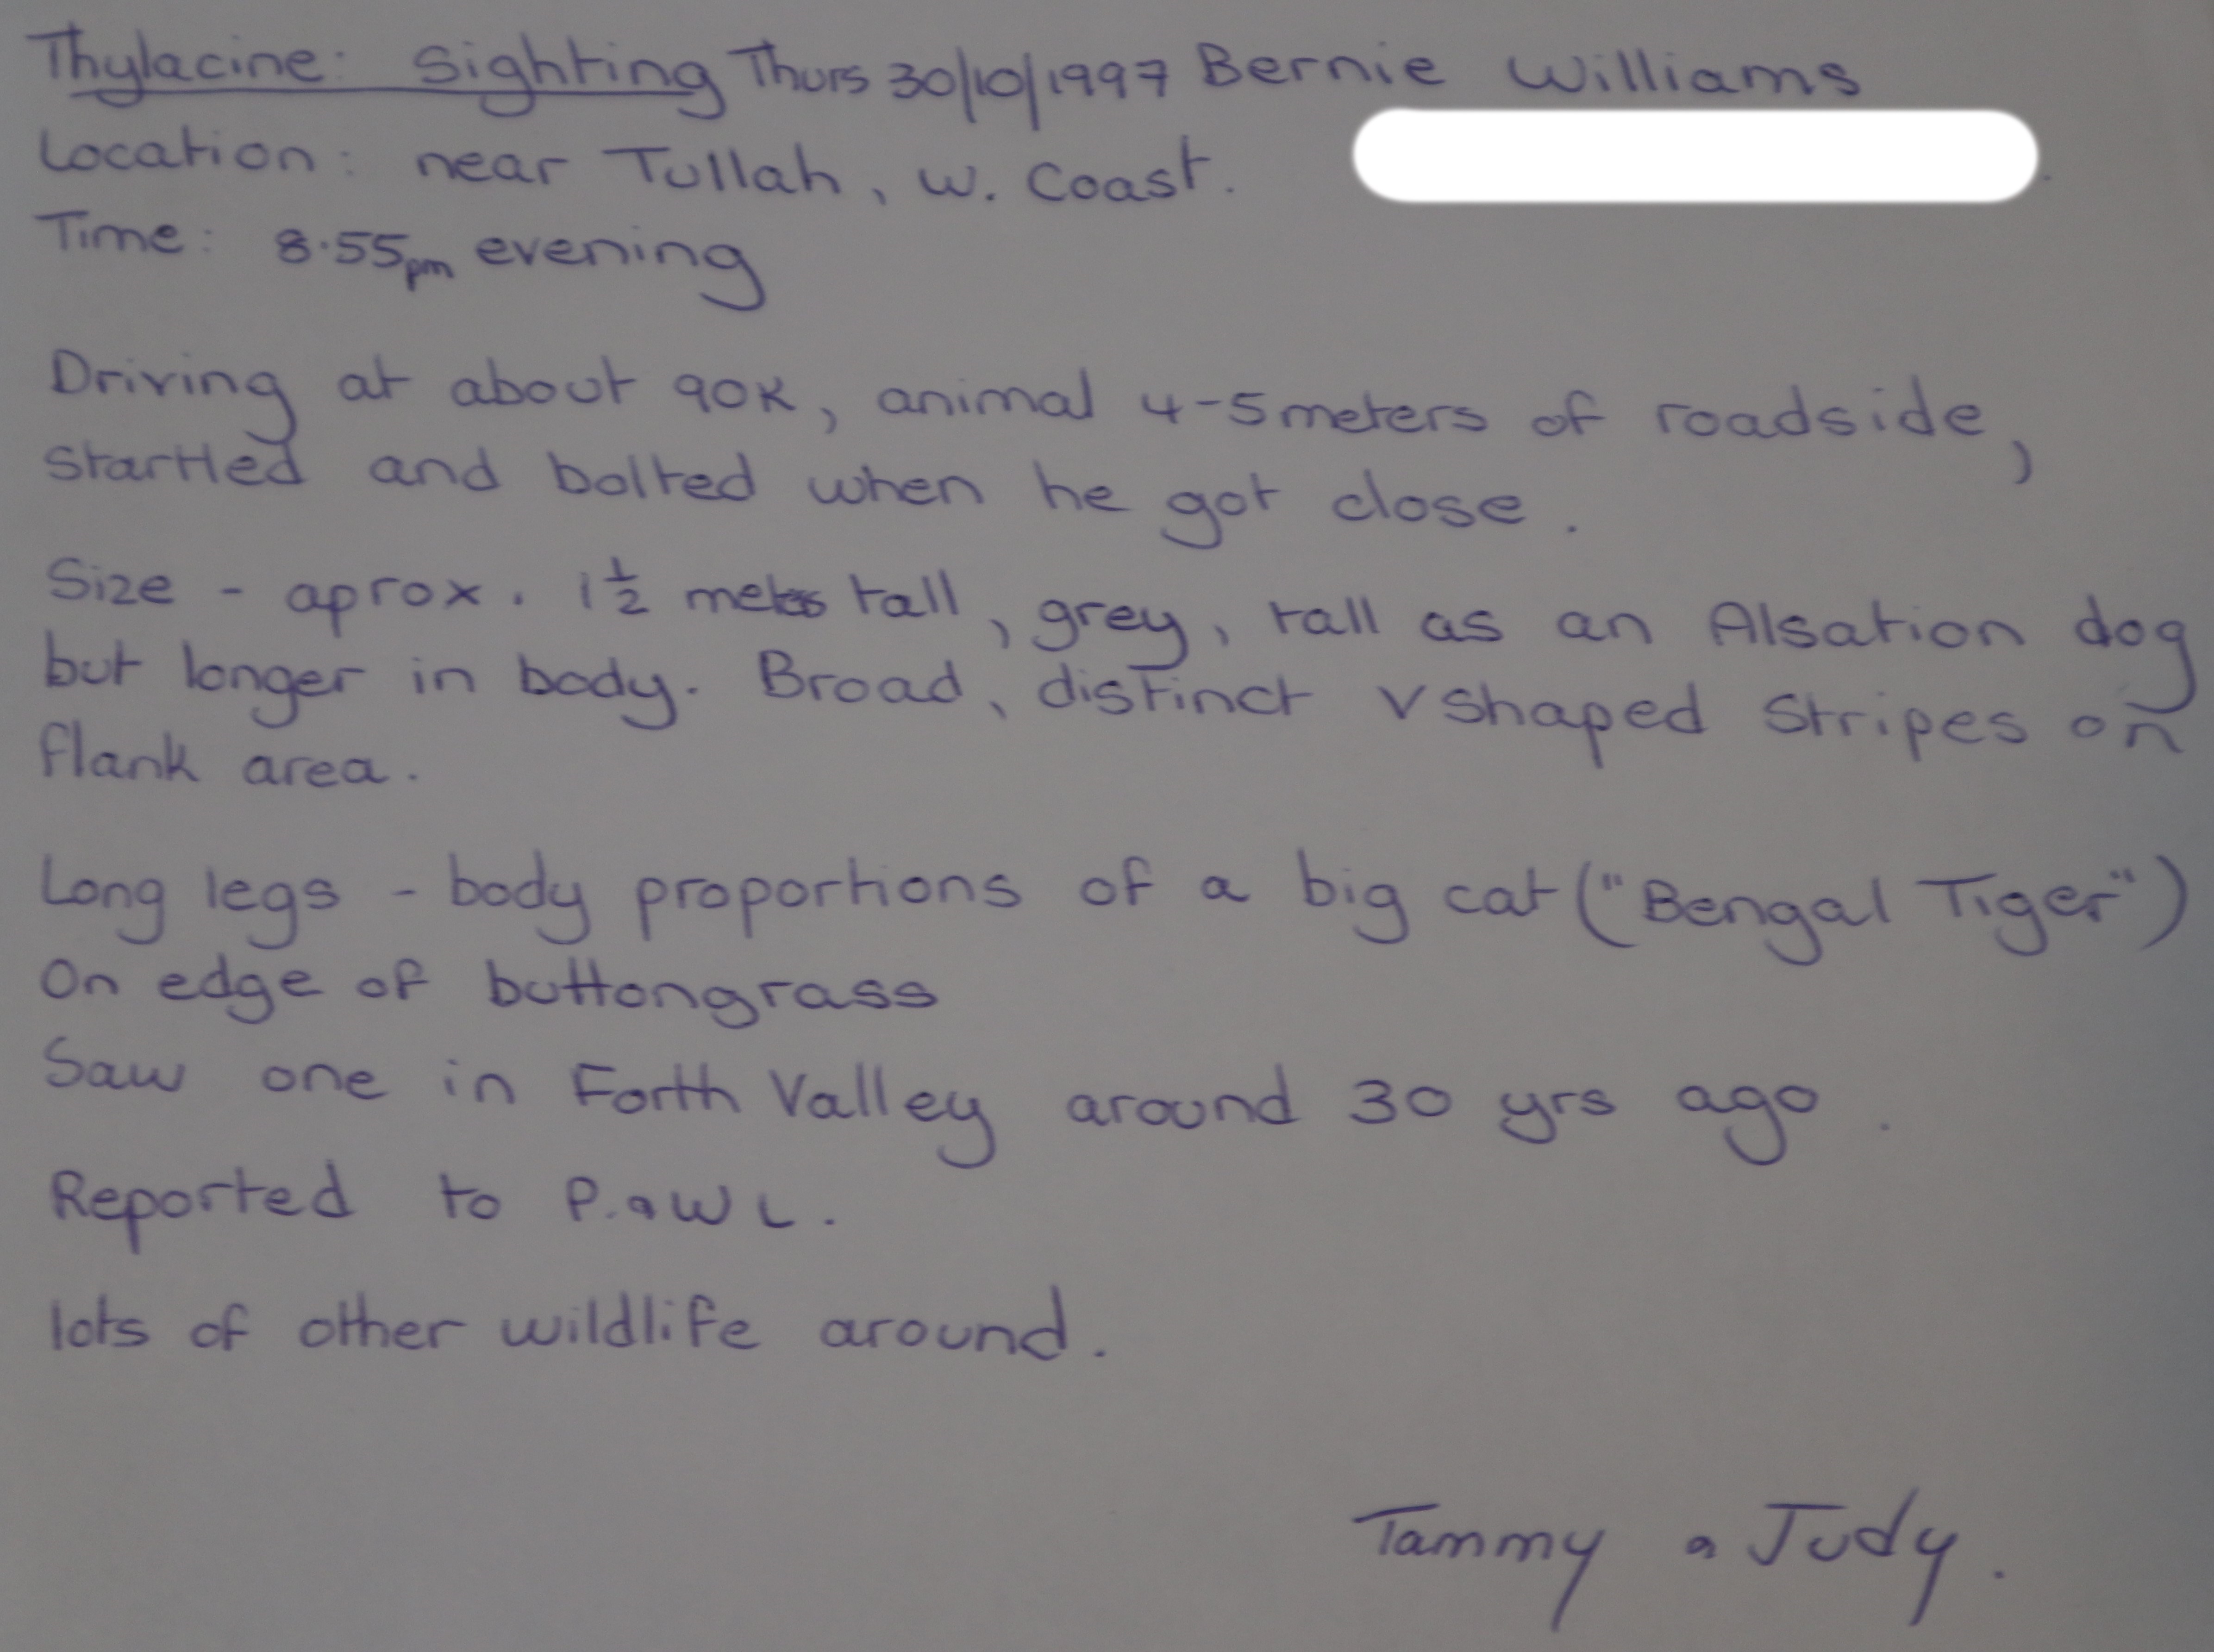 Thylacine: Sighting Thurs 30/10/1997 Bernie Williams
Location: near Tullah, W. Coast.
Time: 8.55pm evening
Driving at about 90K, animal 4-5 meters of roadside,
startled and bolted when he got close.
Size - aprox. 1½ metes tall, grey, tall as an Alsation dog
but longer in body. Broad, distinct V shaped stripes on
flank area.
Long legs - body proportions of a big cat ("Bengal Tiger")
On edge of buttongrass
Saw one in Forth Valley around 30 yrs ago.
Reported to P.aWL.
lots of other wildlife around.
Tammy a Judy.